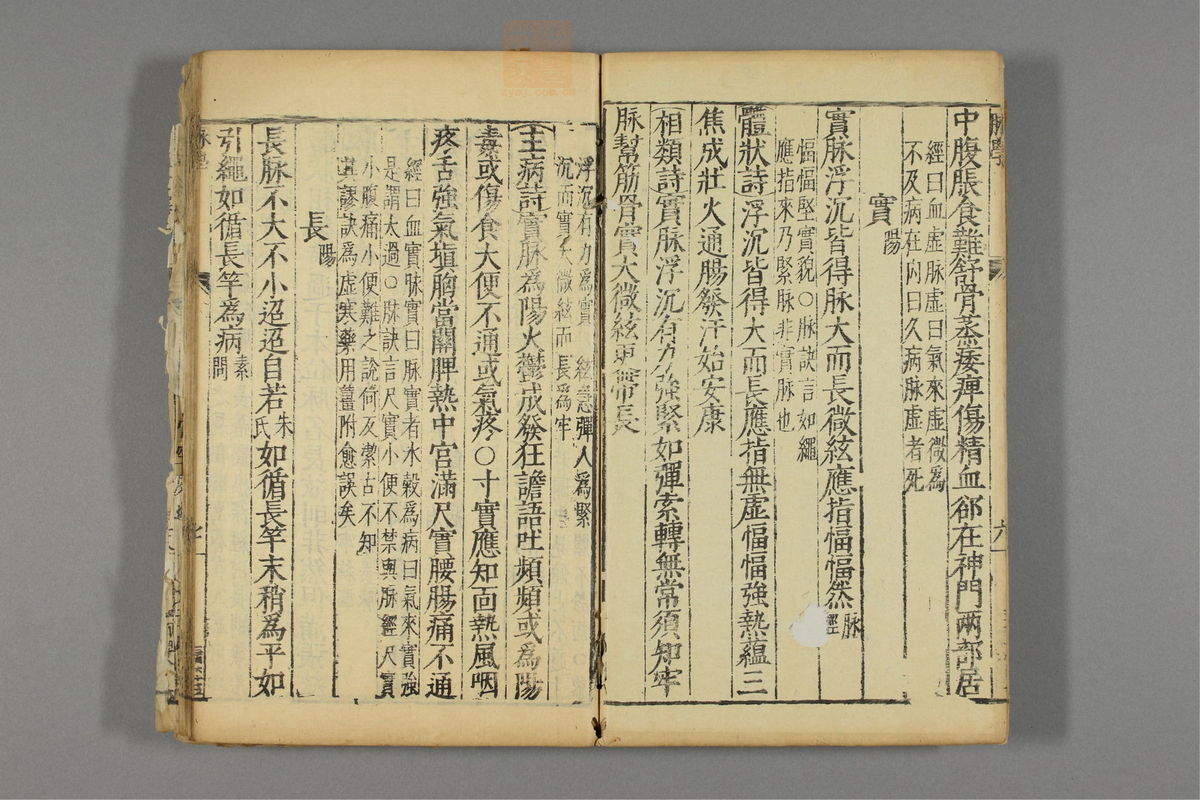 中腹脹食難舒骨蒸痿痺傷精血卻在神門兩部居
經曰血虛脉虛曰氣來虛微爲
不及病在内曰久病脉虛者死
實陽
實脉浮沉皆得脉大而長微絃應指愊愊然脉經
愊愊堅實貌○脉訣言如繩
應指來乃緊脉非實脉也
體狀詩浮沉皆得大而長應指無虛愊愊強熱蘊三
焦成壯火通腸發汗始安康
相類詩實脉浮沉有力強緊如彈索轉無常須知牢
脉幫筋骨實大微絃更帶長
浮沉有力爲實 絃急彈人爲緊
沉而實大微絃而長爲牢
主病詩實脉爲陽火鬱成發狂譫語吐頻頻或爲陽
毒或傷食大便不通或氣疼○寸實應知面熱風咽
疼舌強氣塡胸當關脾熱中宮滿尺實腰腸痛不通
經曰血實脉實曰脉實者水穀爲病曰氣來實強
是謂太過○脉訣言尺實小便不禁與脉經尺實
小腹痛小便難之說何反潔古不知
其謬訣爲虛寒藥用薑附愈誤矣
長陽
長脉不大不小迢迢自若朱氏如循長竿末稍爲平如
引繩如循長竿爲病素問
脉學